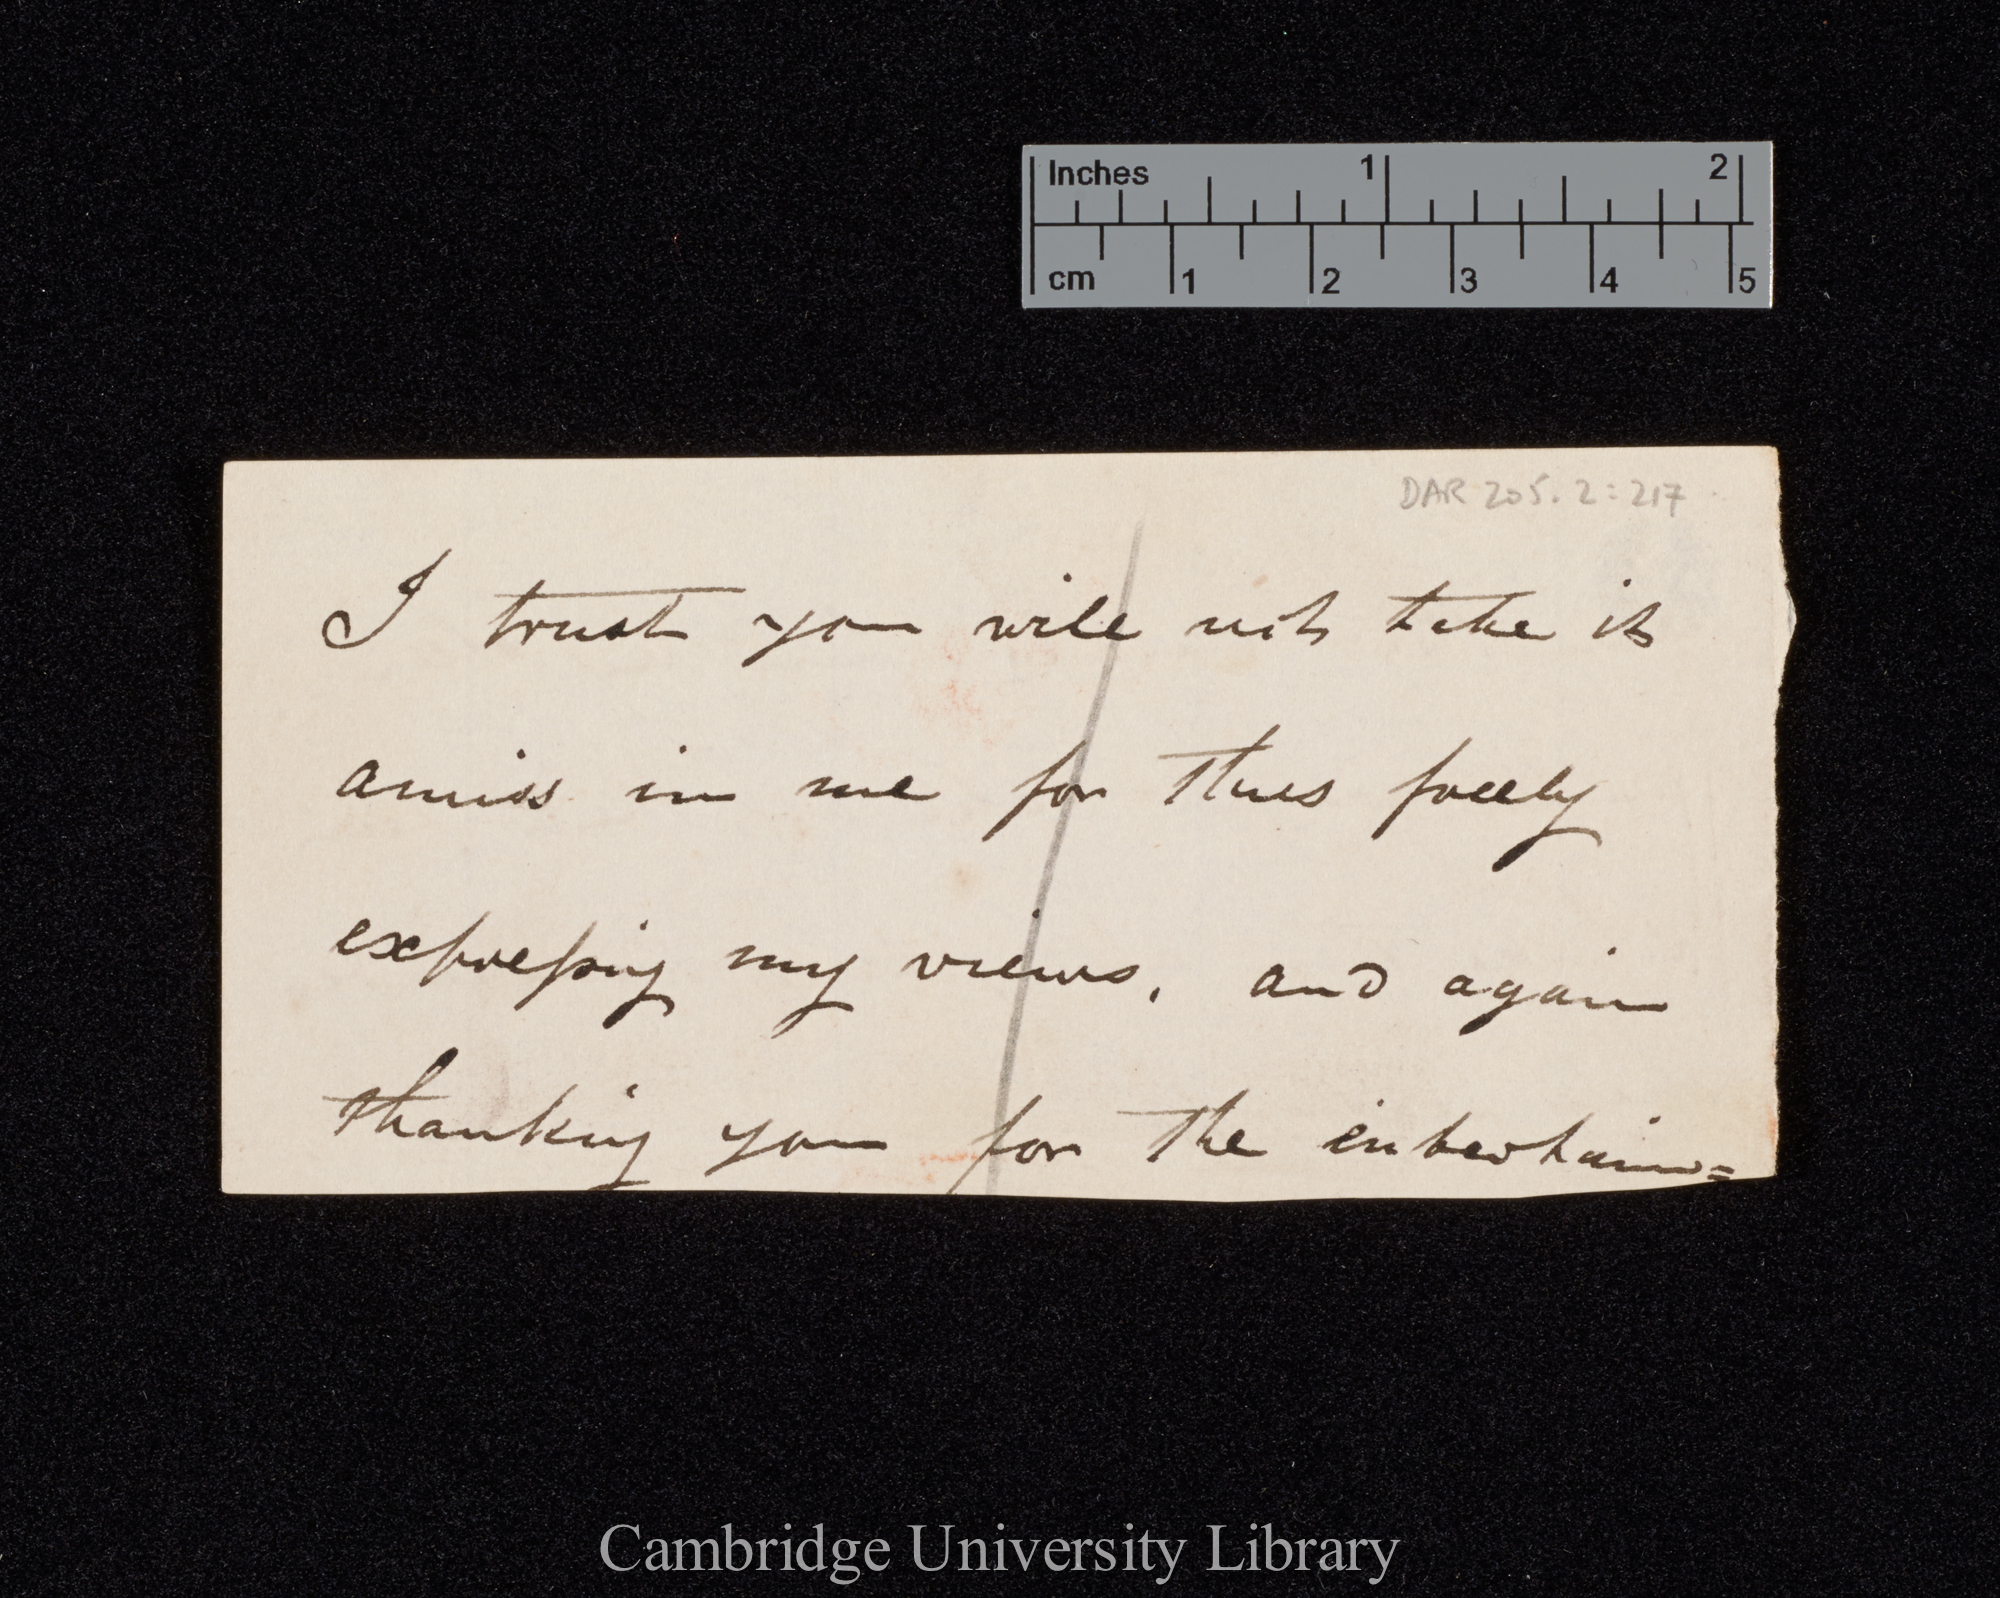 Inches 1 2
cm 1 2 3 4 5
DAR 205.2:217
I trust you will not take it
amiss in me for thus freely
expressing my views, and again
thanking you for the entertain=
Cambridge University Library